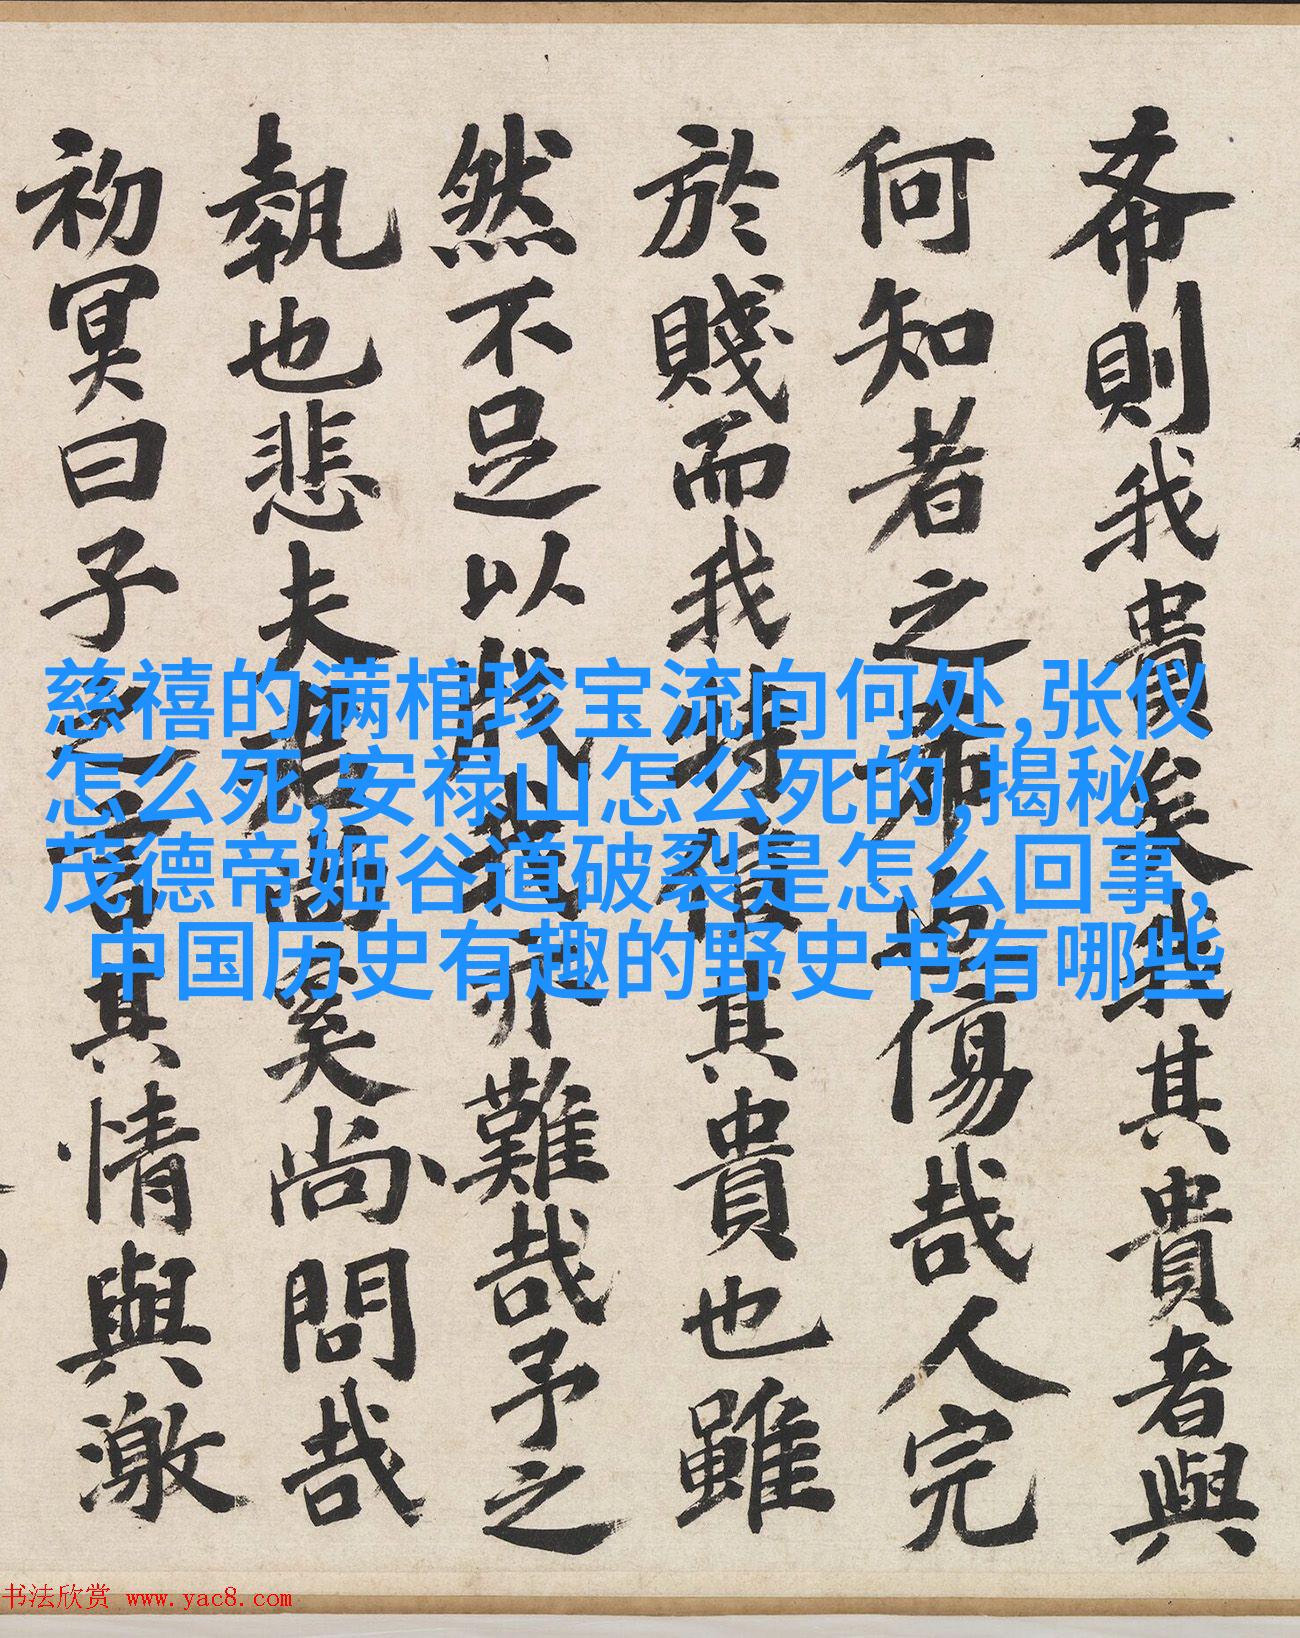 希則我貴矣我其貴者與
何知者之希也傷哉人完
於賤而我其貴也雖
然不足以難哉予之
執也悲夫奚尚問哉
初冥曰子之言其情與激
慈禧的满棺珍宝流向何处,张仪
怎么死,安禄山怎么死的,揭秘
茂德帝姬谷道破裂是怎么回事,
中国历史有趣的野史书有哪些
书法欣赏 www.yac8.com